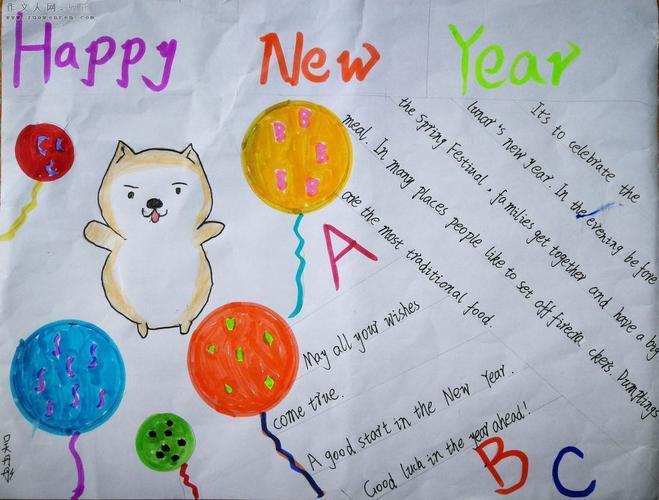 作文人网
www.zuowenren.com
Happy New Year
It's to celebrate the
lunar's new year. In the evening before
the Spring Festival, families get together and have a big
meal. In many places people like to set off firecra ckers. Dumplings
are the most traditional food.
A
May all your wishes
come true.
A good start in the New Year.
Good luck in the year ahead!
B C